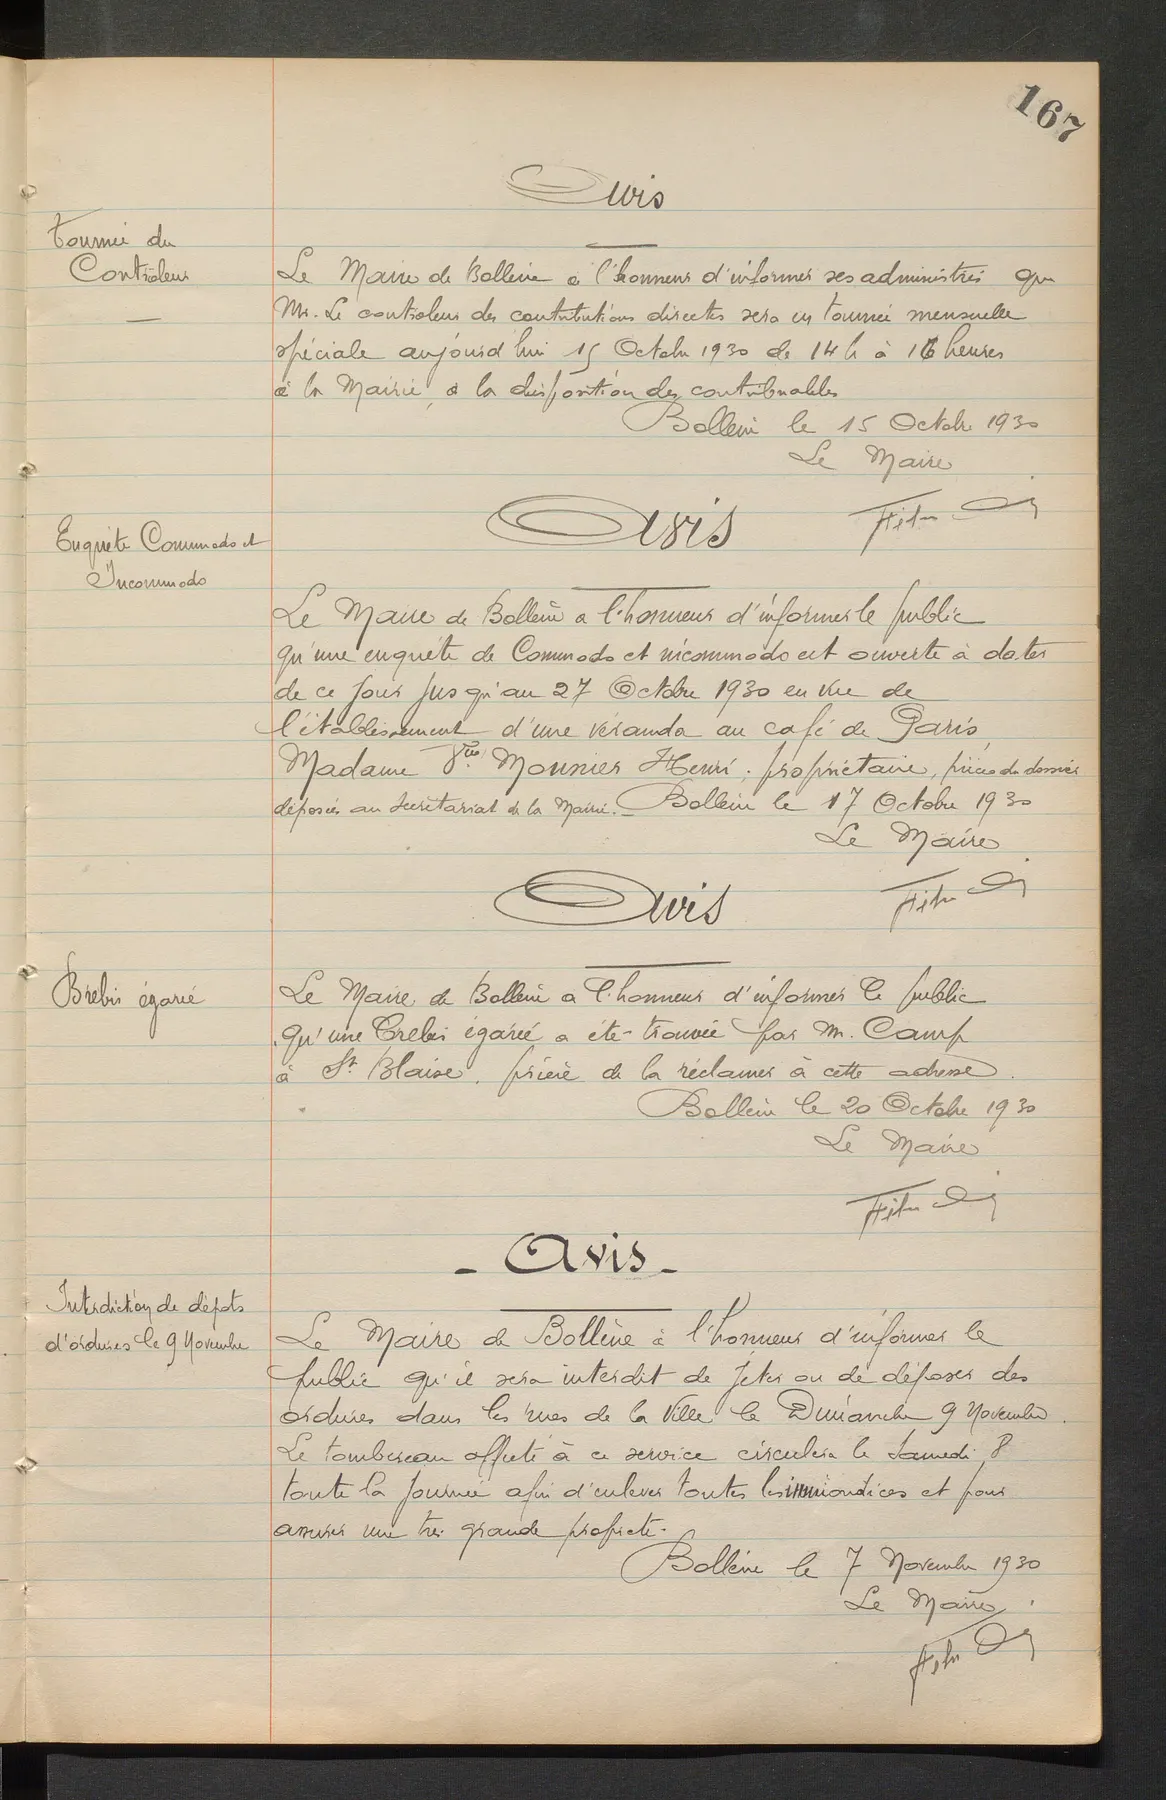 167
Avis
Tournée du
Contrôleur
Le Maire de Bollène a l'honneur d'informer ses administrés que
Mr. Le controleur des contributions directes sera en tournée mensuelle
spéciale aujourd'hui 15 Octobre 1930 de 14 h à 16 heures
à la Mairie, à la disposition des contribuables
Bollène le 15 Octobre 1930
Le Maire
Avis
Enquête Commodo et
Incommodo
Le Maire de Bollène a l'honneur d'informer le public
qu'une enquête de Commodo et incommodo est ouverte à dater
de ce jour jusqu'au 27 Octobre 1930 en vue de
l'établissement d'une véranda au café de Paris
Madame Vve Mounier Henri, propriétaire, pièces du dossier
déposées au secrétariat de la Mairie. Bollène le 17 Octobre 1930
Le Maire
Avis
Brebis égarée
Le Maire de Bollène a l'honneur d'informer le public
qu'une brebis égarée a été trouvée par M. Camp
à St. Blaise, prière de la réclamer à cette adresse.
Bollène le 20 Octobre 1930
Le Maire
- Avis -
Interdiction de dépots
d'ordures le 9 Novembre
Le Maire de Bollène à l'honneur d'informer le
public qu'il sera interdit de jeter ou de déposer des
ordures dans les rues de la Ville le Dimanche 9 Novembre.
Le tombereau affecté à ce service circulera le Samedi 8
toute la journée afin d'enlever toutes les immondices et pour
assurer une très grande propreté.
Bollène le 7 Novembre 1930
Le Maire